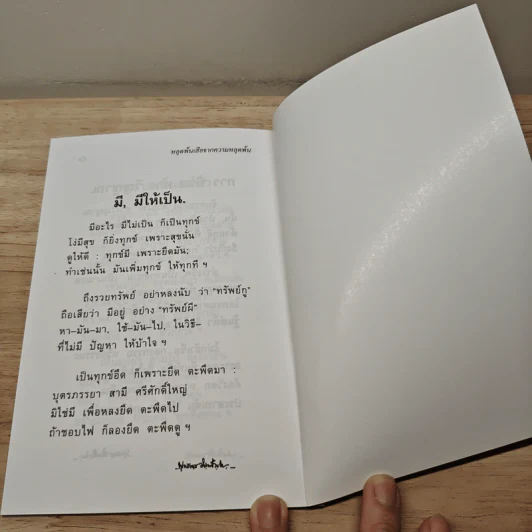 หลุดพ้นเสียจากความหลุดพ้น
มี, มีให้เป็น.
มีอะไร มีไม่เป็น ก็เป็นทุกข์
โง่มีสุข ก็ยิ่งทุกข์ เพราะสุขนั้น
ดูให้ดี : ทุกข์มี เพราะยึดมัน;
ทำเช่นนั้น มันเพิ่มทุกข์ ให้ทุกที ฯ
ถึงรวยทรัพย์ อย่าหลงนับ ว่า “ทรัพย์กู”
ถือเสียว่า มีอยู่ อย่าง “ทรัพย์ผี”
หา-มัน-มา, ใช้-มัน-ไป, ในวิธี-
ที่ไม่มี ปัญหา ให้บ้าใจ ฯ
เป็นทุกข์อืด ก็เพราะยึด ตะพึดมา :
บุตรภรรยา สามี ศรีศักดิ์ใหญ่
มีใช่มี เพื่อหลงยึด ตะพึดไป
ถ้าชอบไฟ ก็ลองยึด ตะพึดดู ฯ